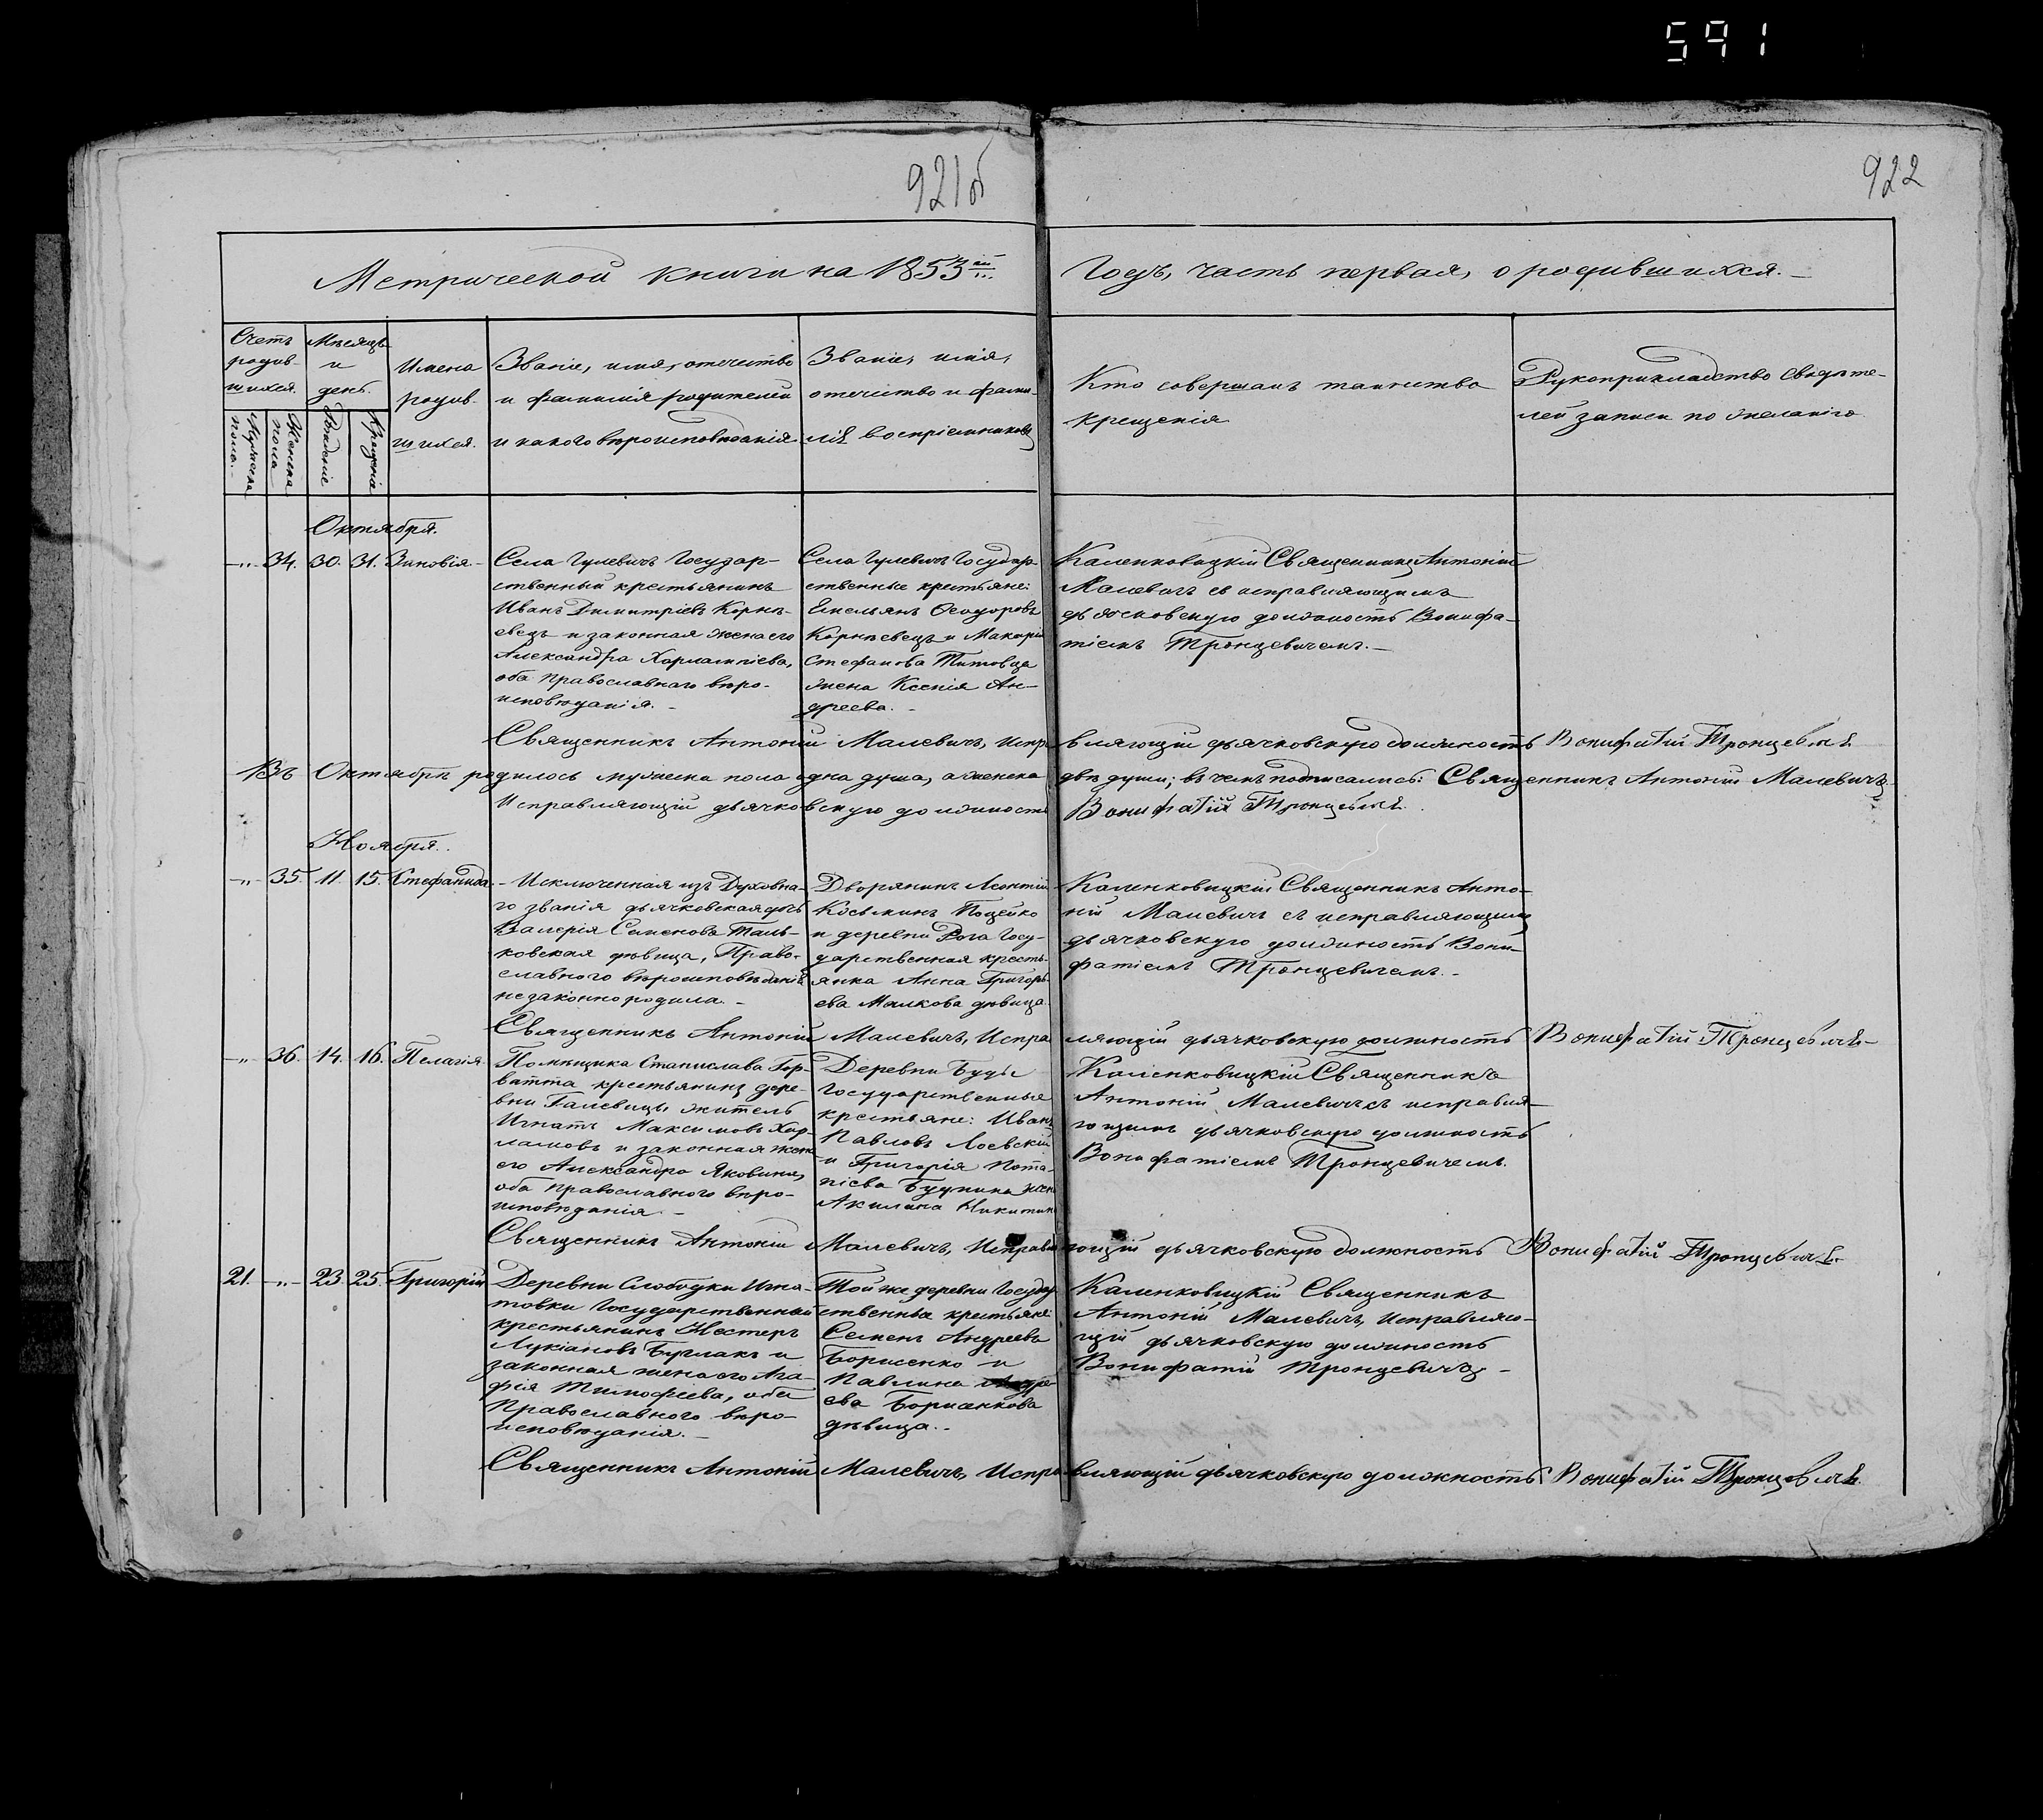 591
921об
922
Метрической книги на 1853й
Годъ, часть первая, о родившихся.
Счетъ родив-шихся.
Мѣсяцъ и день.
Мужеска пола.
Женска пола
Рожденіе
Крещеніе
Имена
родив-
шихся.
Званіе, имя, отечество
и фамилія родителей
и какого вѣроисповѣданія
Званіе, имя,
отечество и фами-
лія воспріемниковъ
Кто совершалъ таинство
крещенія
Рукоприкладство свидѣте-
лей записи по желанію
Октября.
-"- 34. 30. 31. Зиновія.
Села Гулевичъ Государ-
ственный крестьянинъ
Иванъ Димитріевъ Корнѣ-
евецъ и законная жена его
Александра Харлампіева,
оба православнаго вѣро-
исповѣданія.
Села Гулевичъ Государ-
ственные крестьяне:
Емельянъ Ѳеодоровъ
Корнѣевецъ и Макарія
Стефанова Титовца
жена Ксенія Ан-
дреева.
Каленковицкій Священникъ Антоній
Малевичъ съ исправляющимъ
дьячковскую должность Вонифа-
тіемъ Тронцевичемъ.
Священникъ Антоній Малевичъ, Испра вляющій дьячковскую должность Вонифатій Тронцевичъ
Въ Октябрѣ родилось мужеска пола одна душа, а женска двѣ души; въ чемъ подписались: Священникъ Антоній Малевичъ,
Исправляющій дьячковскую должность Вонифатій Тронцевичъ.
Ноября.
-"- 35. 11. 15. Стефанида.
Исключенная изъ Духовна-
го званія дьячковская дочь
Валерія Семенова Таль-
ковская дѣвица, Право-
славного вѣроисповѣданія
незаконно родила.
Дворянинъ Леонтій
Косьминъ Поцейко
и деревни Рога Госу-
дарственная кресть-
янка Анна Григорь-
ева Малкова дѣвица.
Каленковицкій Священникъ Анто-
ній Малевичъ съ исправляющимъ
дьячковскую должность Вони-
фатіемъ Тронцевичемъ.
Священникъ Антоній Малевичъ, Испра ляющій дьячковскую должность Вонифатій Тронцевичъ
-"- 36. 14. 16. Пелагія
Помѣщика Станислава Гор-
ватта крестьянинъ дере-
вни Галевицъ житель
Игнатъ Максимовъ Хар-
ламовъ и законная жена
его Александра Яковина,
оба православного вѣро-
исповѣданія.
Деревни Буды
государственные
крестьяне: Иванъ
Павловъ Лоевскій
и Григорія Пота-
піева жена
Акилина Никитина
Каленковицкій Священникъ
Антоній Малевичъ съ исправля-
ющимъ дьячковскую должность
Вонифатіемъ Тронцевичемъ.
Священникъ Антоній Малевичъ, Исправля ющій дьячковскую должность Вонифатій Тронцевичъ.
21. -"- 23. 25. Григорій
Деревни Слободки Игна-
товки Государственный
крестьянинъ Нестеръ
Лукіановъ Бурлакъ и
законная жена его Ага-
фія Тимофеева, оба
Православного вѣро-
исповѣданія.
Той же деревни Государ
ственные крестьяне
Семенъ Андреевъ
Борисенко и
Павлина Андре
ева Борисенкова
дѣвица.
Каленковицкій Священникъ
Антоній Малевичъ, Исправляю-
щій дьячковскую должность
Вонифатій Тронцевичъ.
Священникъ Антоній Малевичъ, Испра вляющій дьячковскую должность Вонифатій Тронцевичъ.